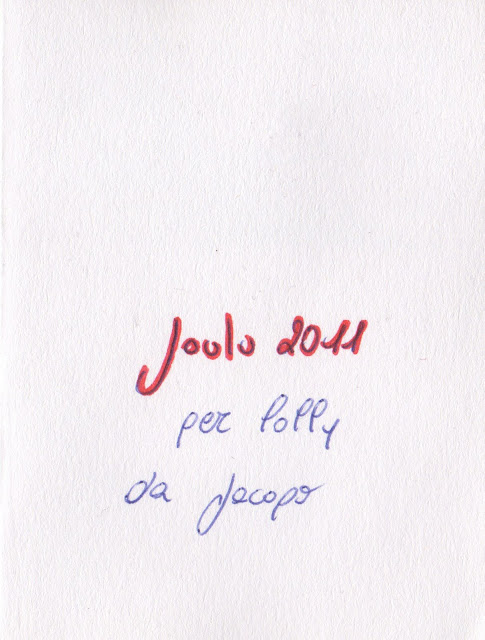 Joulu 2011
per lolly
da Jacopo